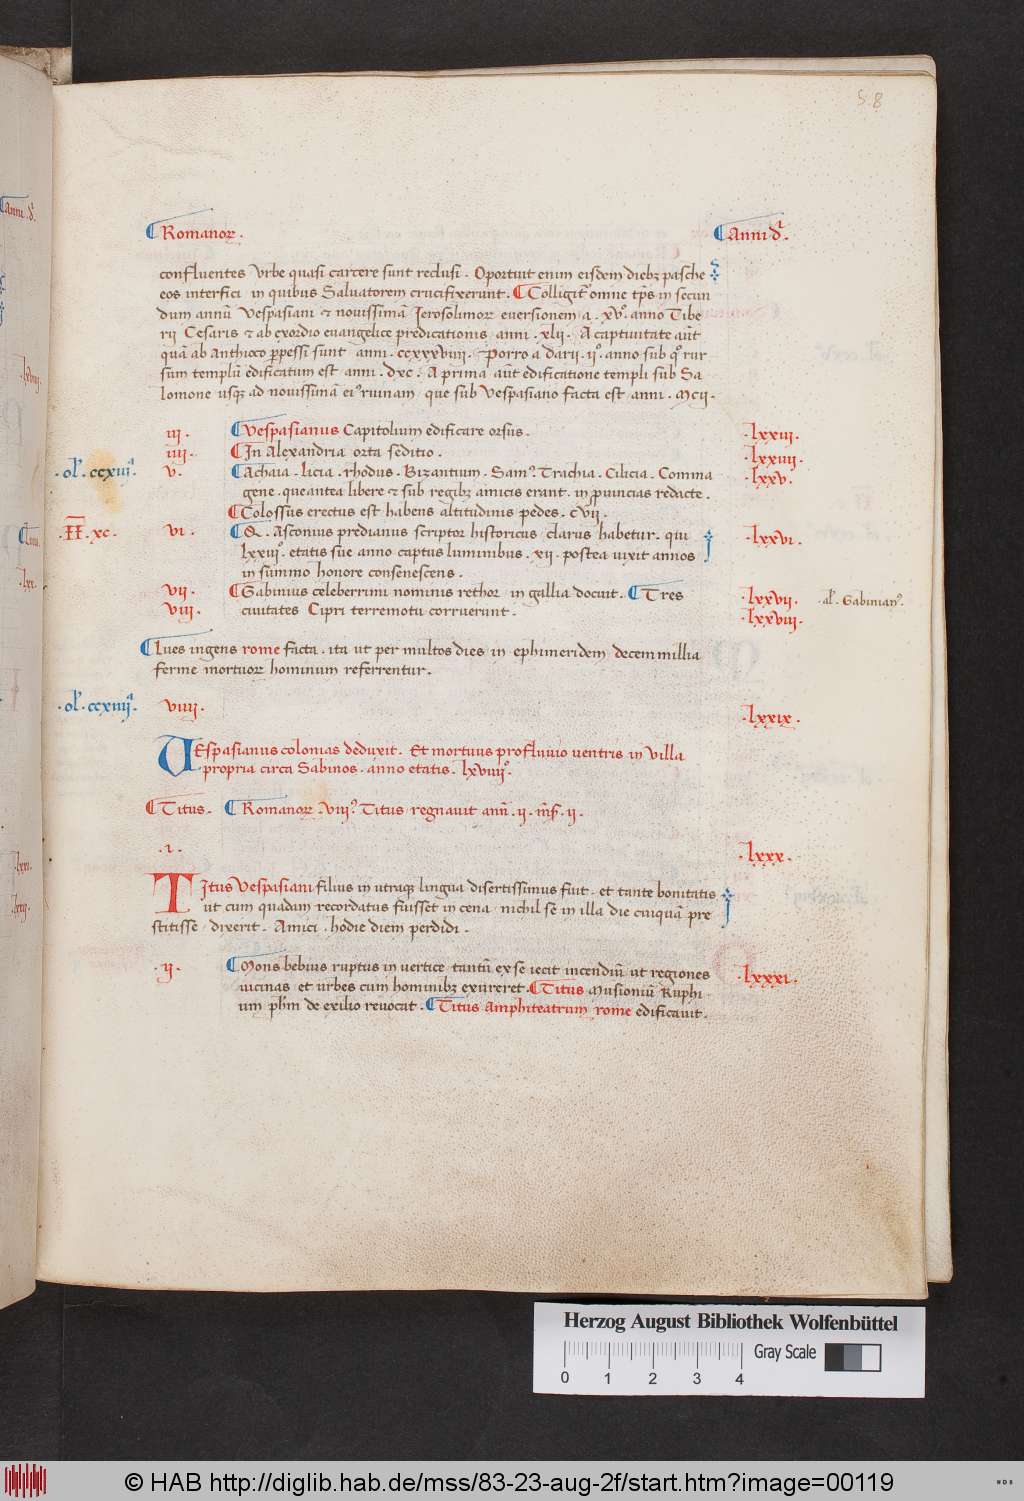 58
Romanoꝝ.
Anni dͥ.
confluentes Vrbe quasi carcere sunt reclusi. Oportuit enim eisdem diebꝫ pasche
eos interfici in quibus Saluatorem crucifixerunt. Colligit᷑ omne tp̄s in secun
dum annū Vespasiani ⁊ nouissimā Jerosolimoꝝ euersionem a .xvͦ. anno Tibe
rii Cesaris ⁊ ab exordio euangelice predicationis anni .xlii. A captiuitate aūt
quā ab Anthioco ꝑpessi sunt anni .ccxxxviiii. Porro a darii .iiͦ. anno sub qͦ rur
sum templū edificatum est anni .dxc. A prima aūt edificatione templi sub Sa
lomone usqꝫ ad nouissimā eiꝰ ruinam que sub Vespasiano facta est anni .mcii.
iii. Vespasianus Capitolium edificare orsus. .lxxiii.
iiii. In Alexandria orta seditio. .lxxiiii.
.ol̓. ccxiiiᵃ. v. Achaia. licia. rhodus. Bizantium. Samꝰ. Trachia. Cilicia. Comma .lxxv.
gene. que antea libere ⁊ sub regibꝫ amicis erant. in ꝓuincias redacte.
Colossus erectus est habens altitudinis pedes. cvii.
.II̅. xc. vi. Q. Asconius predianus scriptor historicus clarus habetur. qui .lxxvi.
lxxiiiͦ. etatis sue anno captus luminibus .xii. postea uixit annos
in summo honore consenescens.
vii. Gabinius celeberrimi nominis rethor in gallia docuit. Tres .lxxvii. .al̓. Gabinianꝰ.
viii. ciuitates Cipri terremotu corruerunt. .lxxviii.
Lues ingens rome facta. ita ut per multos dies in ephimeridem decem millia
ferme mortuoꝝ hominum referrentur.
.ol̓. ccxiiiiᵃ. viiii. .lxxix.
VEspasianus colonias deduxit. Et mortuus profluuio uentris in uilla
propria circa Sabinos. anno etatis. lxviiiiͦ.
Titus. Romanoꝝ .viiiꝰ. Titus regnauit ann̄. ii. mn̄s. ii.
.i. .lxxx.
TItus Vespasiani filius in utraqꝫ lingua disertissimus fuit. et tante bonitatis
ut cum quadam recordatus fuisset in cena nichil se in illa die cuiquā pre
stitisse dixerit. Amici. hodie diem perdidi.
.ii. Mons bebius ruptus in uertice tantū ex se iecit incendiū ut regiones .lxxxi.
uicinas et urbes cum hominibꝫ exureret. Titus Musioniū Ruphi
um ph̄m de exilio reuocat. Titus Amphiteatrum rome edificauit.
Herzog August Bibliothek Wolfenbüttel
Gray Scale
0 1 2 3 4
© HAB http://diglib.hab.de/mss/83-23-aug-2f/start.htm?image=00119